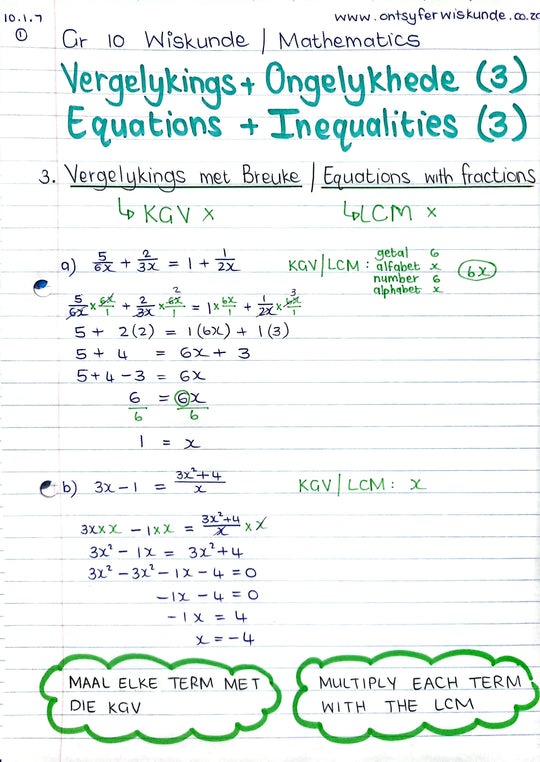 10.1.7
www.ontsyferwiskunde.co.za
①
Gr 10 Wiskunde | Mathematics
Vergelykings + Ongelykhede (3)
Equations + Inequalities (3)
3. Vergelykings met Breuke | Equations with fractions
↳ KGV x ↳ LCM x
a) 5/6x + 2/3x = 1 + 1/2x KGV/LCM : getal 6
alfabet x
number 6
alphabet x
6x
5/6x × 6x/1 + 2/3x × 6x/1 2 = 1 × 6x/1 + 1/2x × 6x/1 3
5 + 2(2) = 1(6x) + 1(3)
5 + 4 = 6x + 3
5+4-3 = 6x
6/6 = 6x/6
1 = x
b) 3x-1 = 3x²+4/x KGV/LCM: x
3x×x - 1×x = 3x²+4/x × x
3x² - 1x = 3x²+4
3x² - 3x² - 1x - 4 = 0
-1x - 4 = 0
-1x = 4
x = -4
MAAL ELKE TERM MET
DIE KGV
MULTIPLY EACH TERM
WITH THE LCM